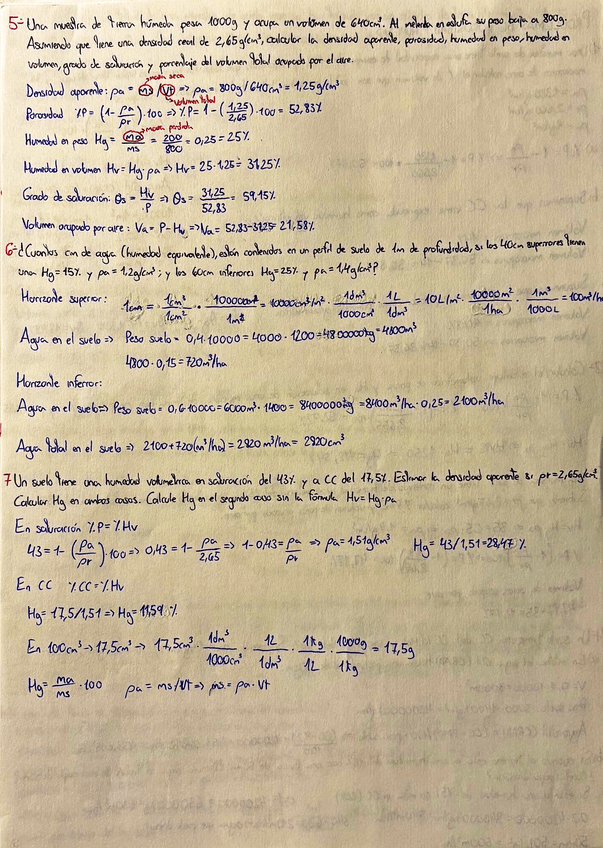 5- Una muestra de tierra húmeda pesa 1000g y ocupa un volumen de 640cm³. Al meterla en estufa su peso baja a 800g.
Asumiendo que tiene una densidad real de 2,65g/cm³, calcular la densidad aparente, porosidad, humedad en peso, humedad en
volumen, grado de saturación y porcentaje del volumen total ocupado por el aire.
masa seca
Densidad aparente: ρa = ms/Vt => ρa = 800g/640cm³ = 1,25g/cm³
Volumen total
Porosidad %P = (1 - ρa/ρr)·100 => %P = 1 - (1,25/2,65)·100 = 52,83%
masa perdida
Humedad en peso Hg = ma/ms = 200/800 = 0,25 = 25%
Humedad en volumen Hv = Hg·ρa => Hv = 25·1,25 = 31,25%
Grado de saturación: Θs = Hv/P => Θs = 31,25/52,83 = 59,15%
Volumen ocupado por aire: Va = P - Hv => Va = 52,83-31,25 = 21,58%
6- ¿Cuantos cm de agua (humedad equivalente), están contenidos en un perfil de suelo de 1m de profundidad, si los 40cm superiores tienen
una Hg=15% y ρa=1,2g/cm³; y los 60cm inferiores Hg=25% y ρa=1,4g/cm³?
Horizonte superior: 1cm = 1cm³/1cm² · 10000cm²/1m² = 10000cm³/m² · 1dm³/1000cm³ · 1L/1dm³ = 10L/m² · 10000m²/1ha · 1m³/1000L = 100m³/ha
Agua en el suelo => Peso suelo = 0,4·10000 = 4000·1200 = 4800000kg = 4800m³
4800·0,15 = 720m³/ha
Horizonte inferior:
Agua en el suelo => Peso suelo = 0,6·10000 = 6000m³·1400 = 8400000kg = 8400m³/ha·0,25 = 2100m³/ha
Agua total en el suelo => 2100+720(m³/ha) = 2820m³/ha = 2820cm³
7 Un suelo tiene una humedad volumetrica en saturación del 43% y a CC del 17,5%. Estimar la densidad aparente si ρr=2,65g/cm³.
Calcular Hg en ambos casos. Calcule Hg en el segundo caso sin la fórmula Hv=Hg·ρa
En saturación %P=%Hv
43 = 1 - (ρa/ρr)·100 => 0,43 = 1 - ρa/2,65 => 1-0,43 = ρa/ρr => ρa = 1,51g/cm³ Hg = 43/1,51 = 28,47%
En CC %CC=%Hv
Hg = 17,5/1,51 => Hg = 11,59%
En 100cm³ → 17,5cm³ → 17,5cm³ · 1dm³/1000cm³ · 1L/1dm³ · 1kg/1L · 1000g/1kg = 17,5g
Hg = ma/ms · 100 ρa = ms/Vt => ms = ρa·Vt